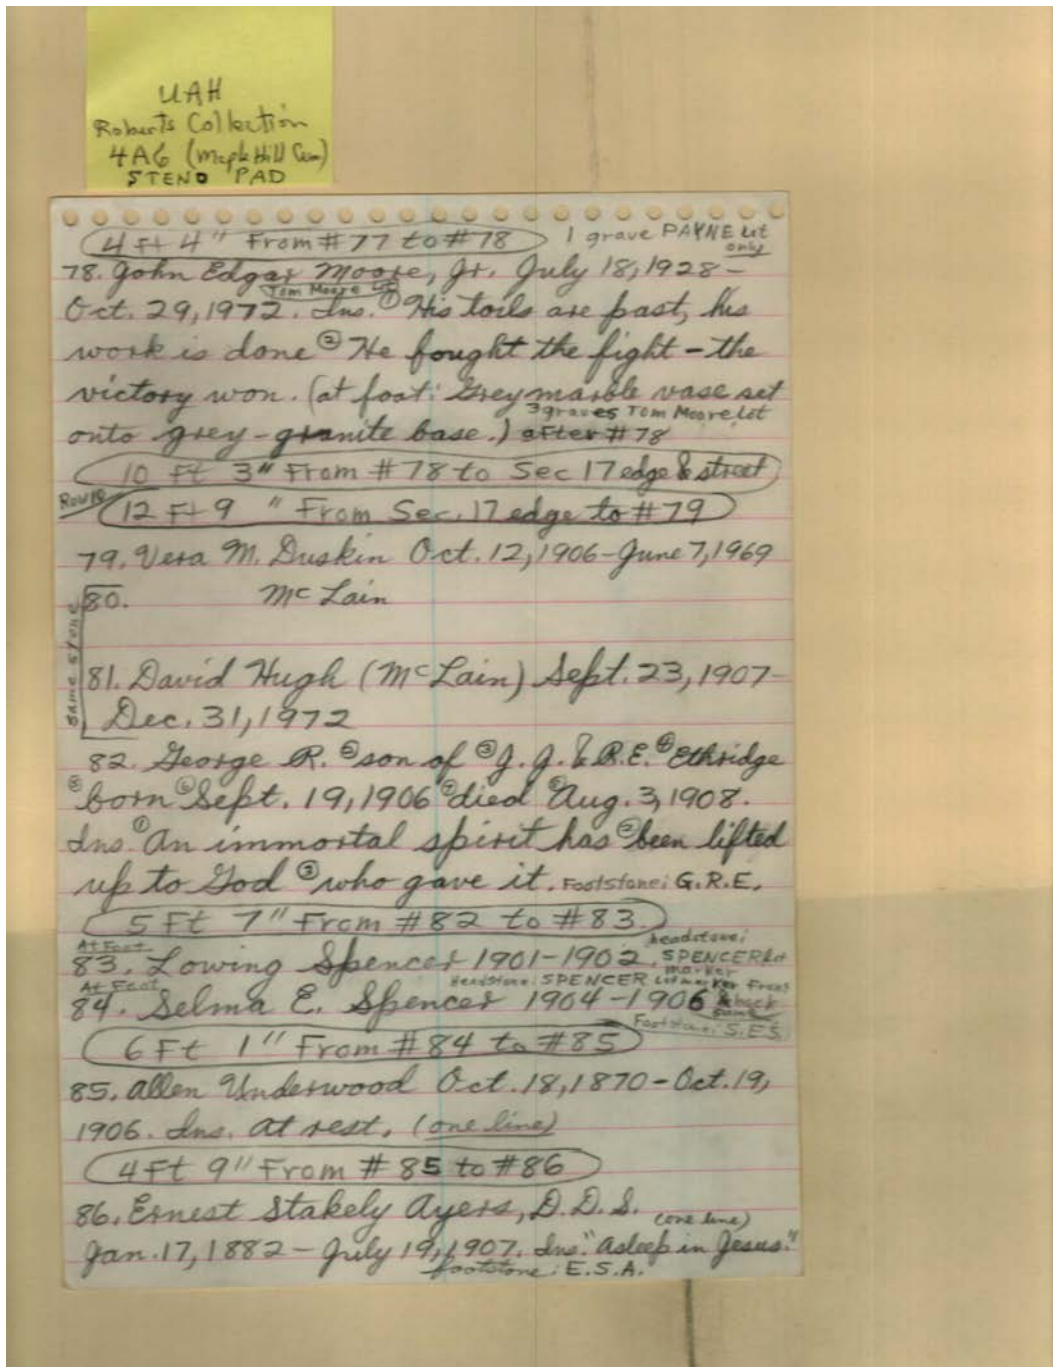 UAH
Roberts Collection
4A6 (Maple Hill Cem)
STENO PAD
4 Ft 4" From #77 to #78
1 grave PAYNE Lot
only
78. John Edgar Moore, Jr. July 18, 1928-
Tom Moore Lot
Oct. 29, 1972. Ins. ① His toils are past, his
work is done ② He fought the fight - the
victory won. (at foot: Grey marble vase set
3 graves Tom Moore Lot
onto grey-granite base.) after #78
10 Ft 3" From #78 to Sec 17 edge & street
Row 10
12 Ft 9 " From Sec. 17 edge to #79
79. Vera M. Duskin Oct. 12, 1906-June 7, 1969
80. McLain
same stone
81. David Hugh (McLain) Sept. 23, 1907-
Dec. 31, 1972
82. George R. ② son of ③ J. J. & R.E. ④ Ethridge
⑤ born ⑥ Sept. 19, 1906 ⑦ died Aug. 3, 1908.
Ins. ① An immortal spirit has ② been lifted
up to God ③ who gave it. Footstone: G.R.E.
5 Ft 7" From #82 to #83
At Foot
headstone:
83. Lowing Spencer 1901-1902. SPENCER Lot
marker
At Foot
Headstone: SPENCER Lot marker Front
84. Selma E. Spencer 1904-1906 & back
same
Footstone: S.E.S.
6 Ft 1" From #84 to #85
85. Allen Underwood Oct. 18, 1870-Oct. 19,
1906. Ins. At rest. (one line)
4 Ft 9" From #85 to #86
86. Ernest Stakely Ayers, D.D.S.
(one line)
Jan. 17, 1882 - July 19, 1907. Ins. "Asleep in Jesus."
footstone: E.S.A.